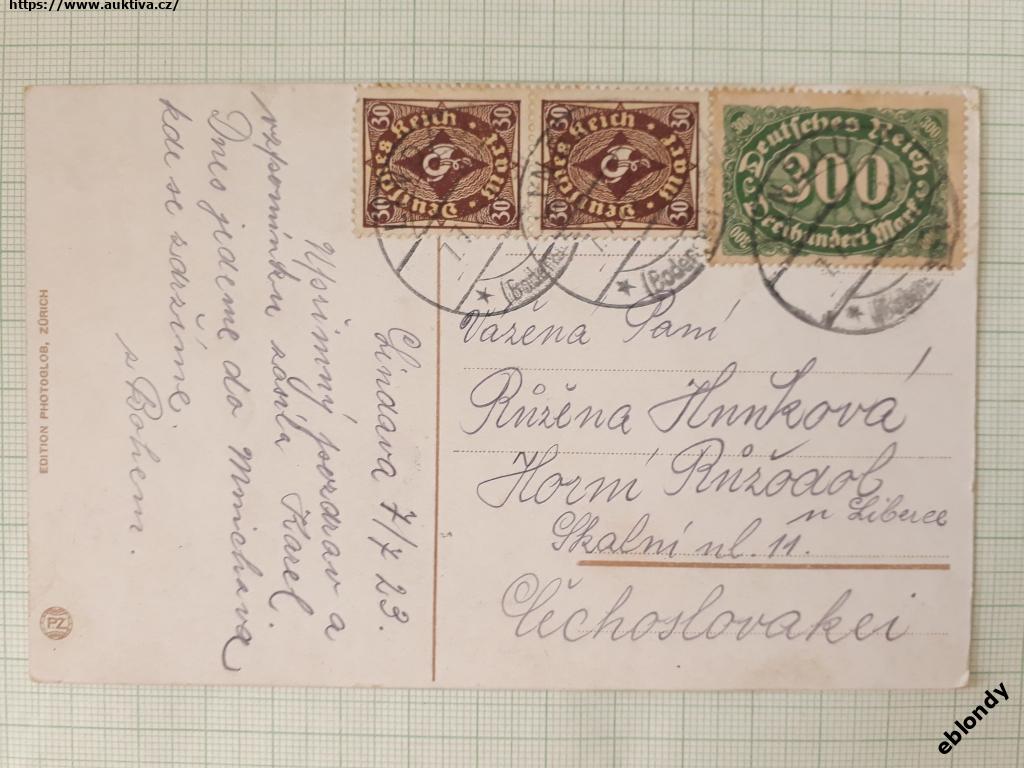 https://www.auktiva.cz/
Lindava 7/7 23.
Upřímný pozdrav a
vzpomínku zasílá Karel.
Dnes jedeme do Mnichova
kde se zdržíme.
s Bohem.
EDITION PHOTOGLOB, ZÜRICH
PZ
30 30
Deutsches Reich
30 Mark 30
30 30
Deutsches Reich
30 Mark 30
300 300
Deutsches Reich
300
Dreihundert Mark
300
(Bodensee)
(Bodensee)
Vážená Paní
Růžena Huňková
Horní Růžodol
u Liberce
Skalní ul. 11.
Čechoslovakei
eblondy